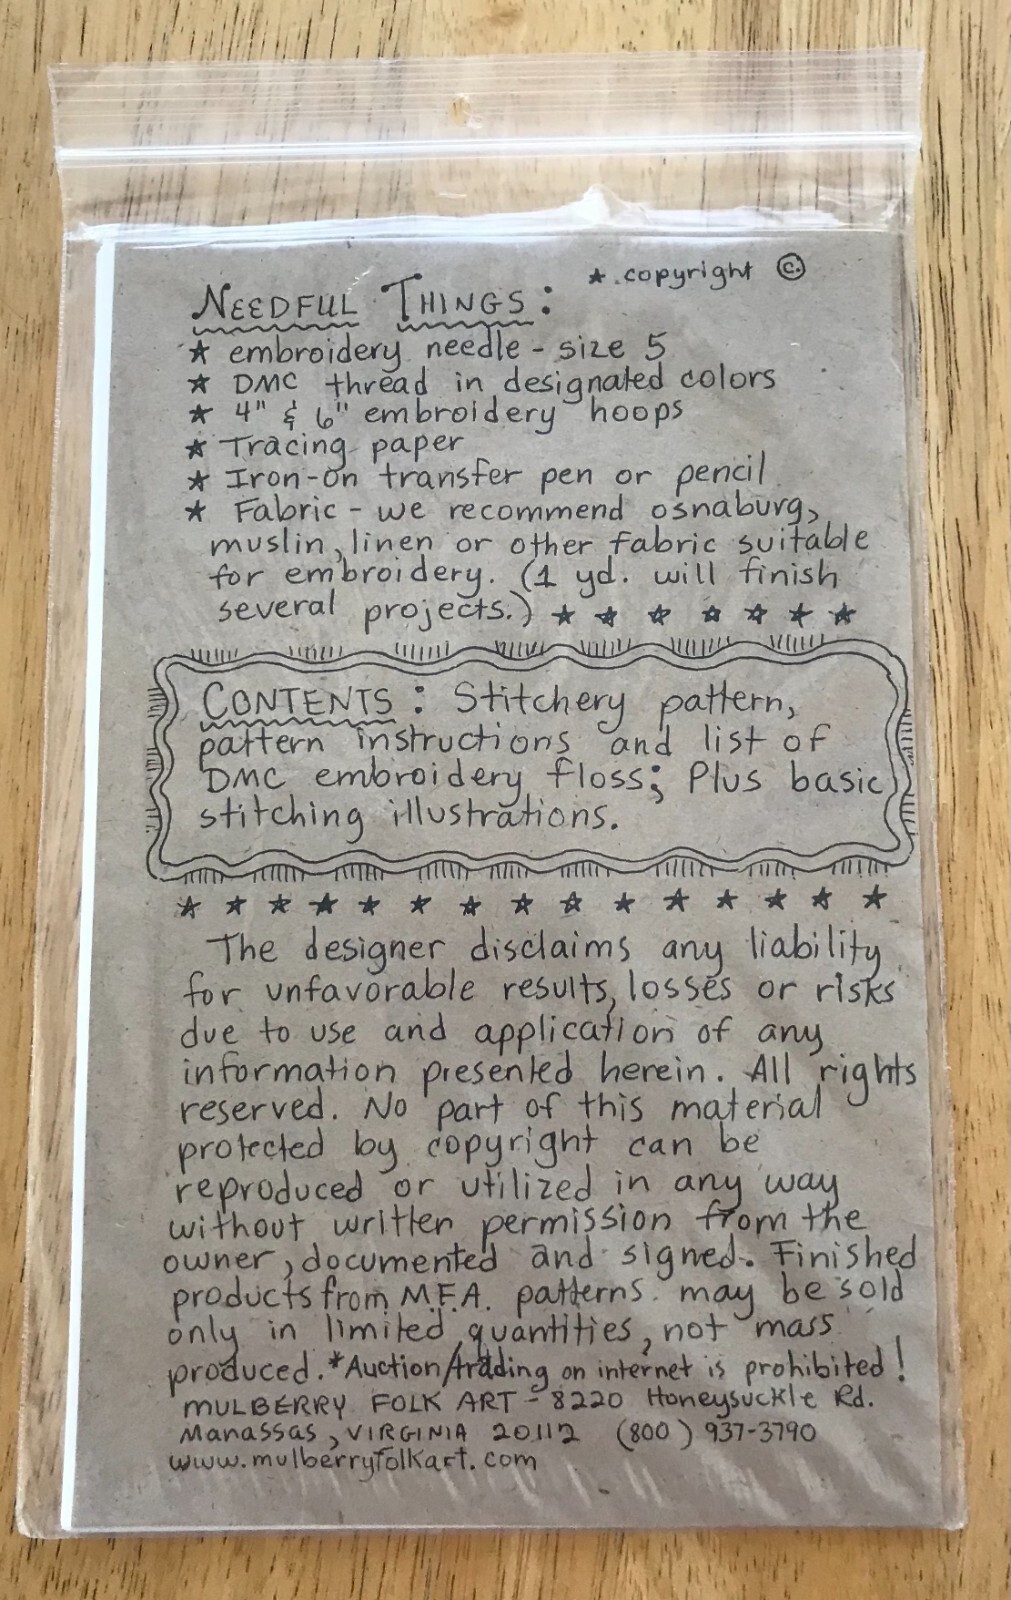 ★ copyright ©
NEEDFUL THINGS:
★ embroidery needle - size 5
★ DMC thread in designated colors
★ 4" & 6" embroidery hoops
★ Tracing paper
★ Iron-on transfer pen or pencil
★ Fabric - we recommend osnaburg,
muslin, linen or other fabric suitable
for embroidery. (1 yd. will finish
several projects.) ★ ★ ★ ★ ★ ★ ★
CONTENTS: Stitchery pattern,
pattern instructions and list of
DMC embroidery floss; Plus basic
stitching illustrations.
★ ★ ★ ★ ★ ★ ★ ★ ★ ★ ★ ★ ★ ★ ★
The designer disclaims any liability
for unfavorable results, losses or risks
due to use and application of any
information presented herein. All rights
reserved. No part of this material
protected by copyright can be
reproduced or utilized in any way
without written permission from the
owner, documented and signed. Finished
products from M.F.A. patterns may be sold
only in limited quantities, not mass
produced. *Auction/trading on internet is prohibited!
MULBERRY FOLK ART - 8220 Honeysuckle Rd.
Manassas, VIRGINIA 20112 (800) 937-3790
www.mulberryfolkart.com